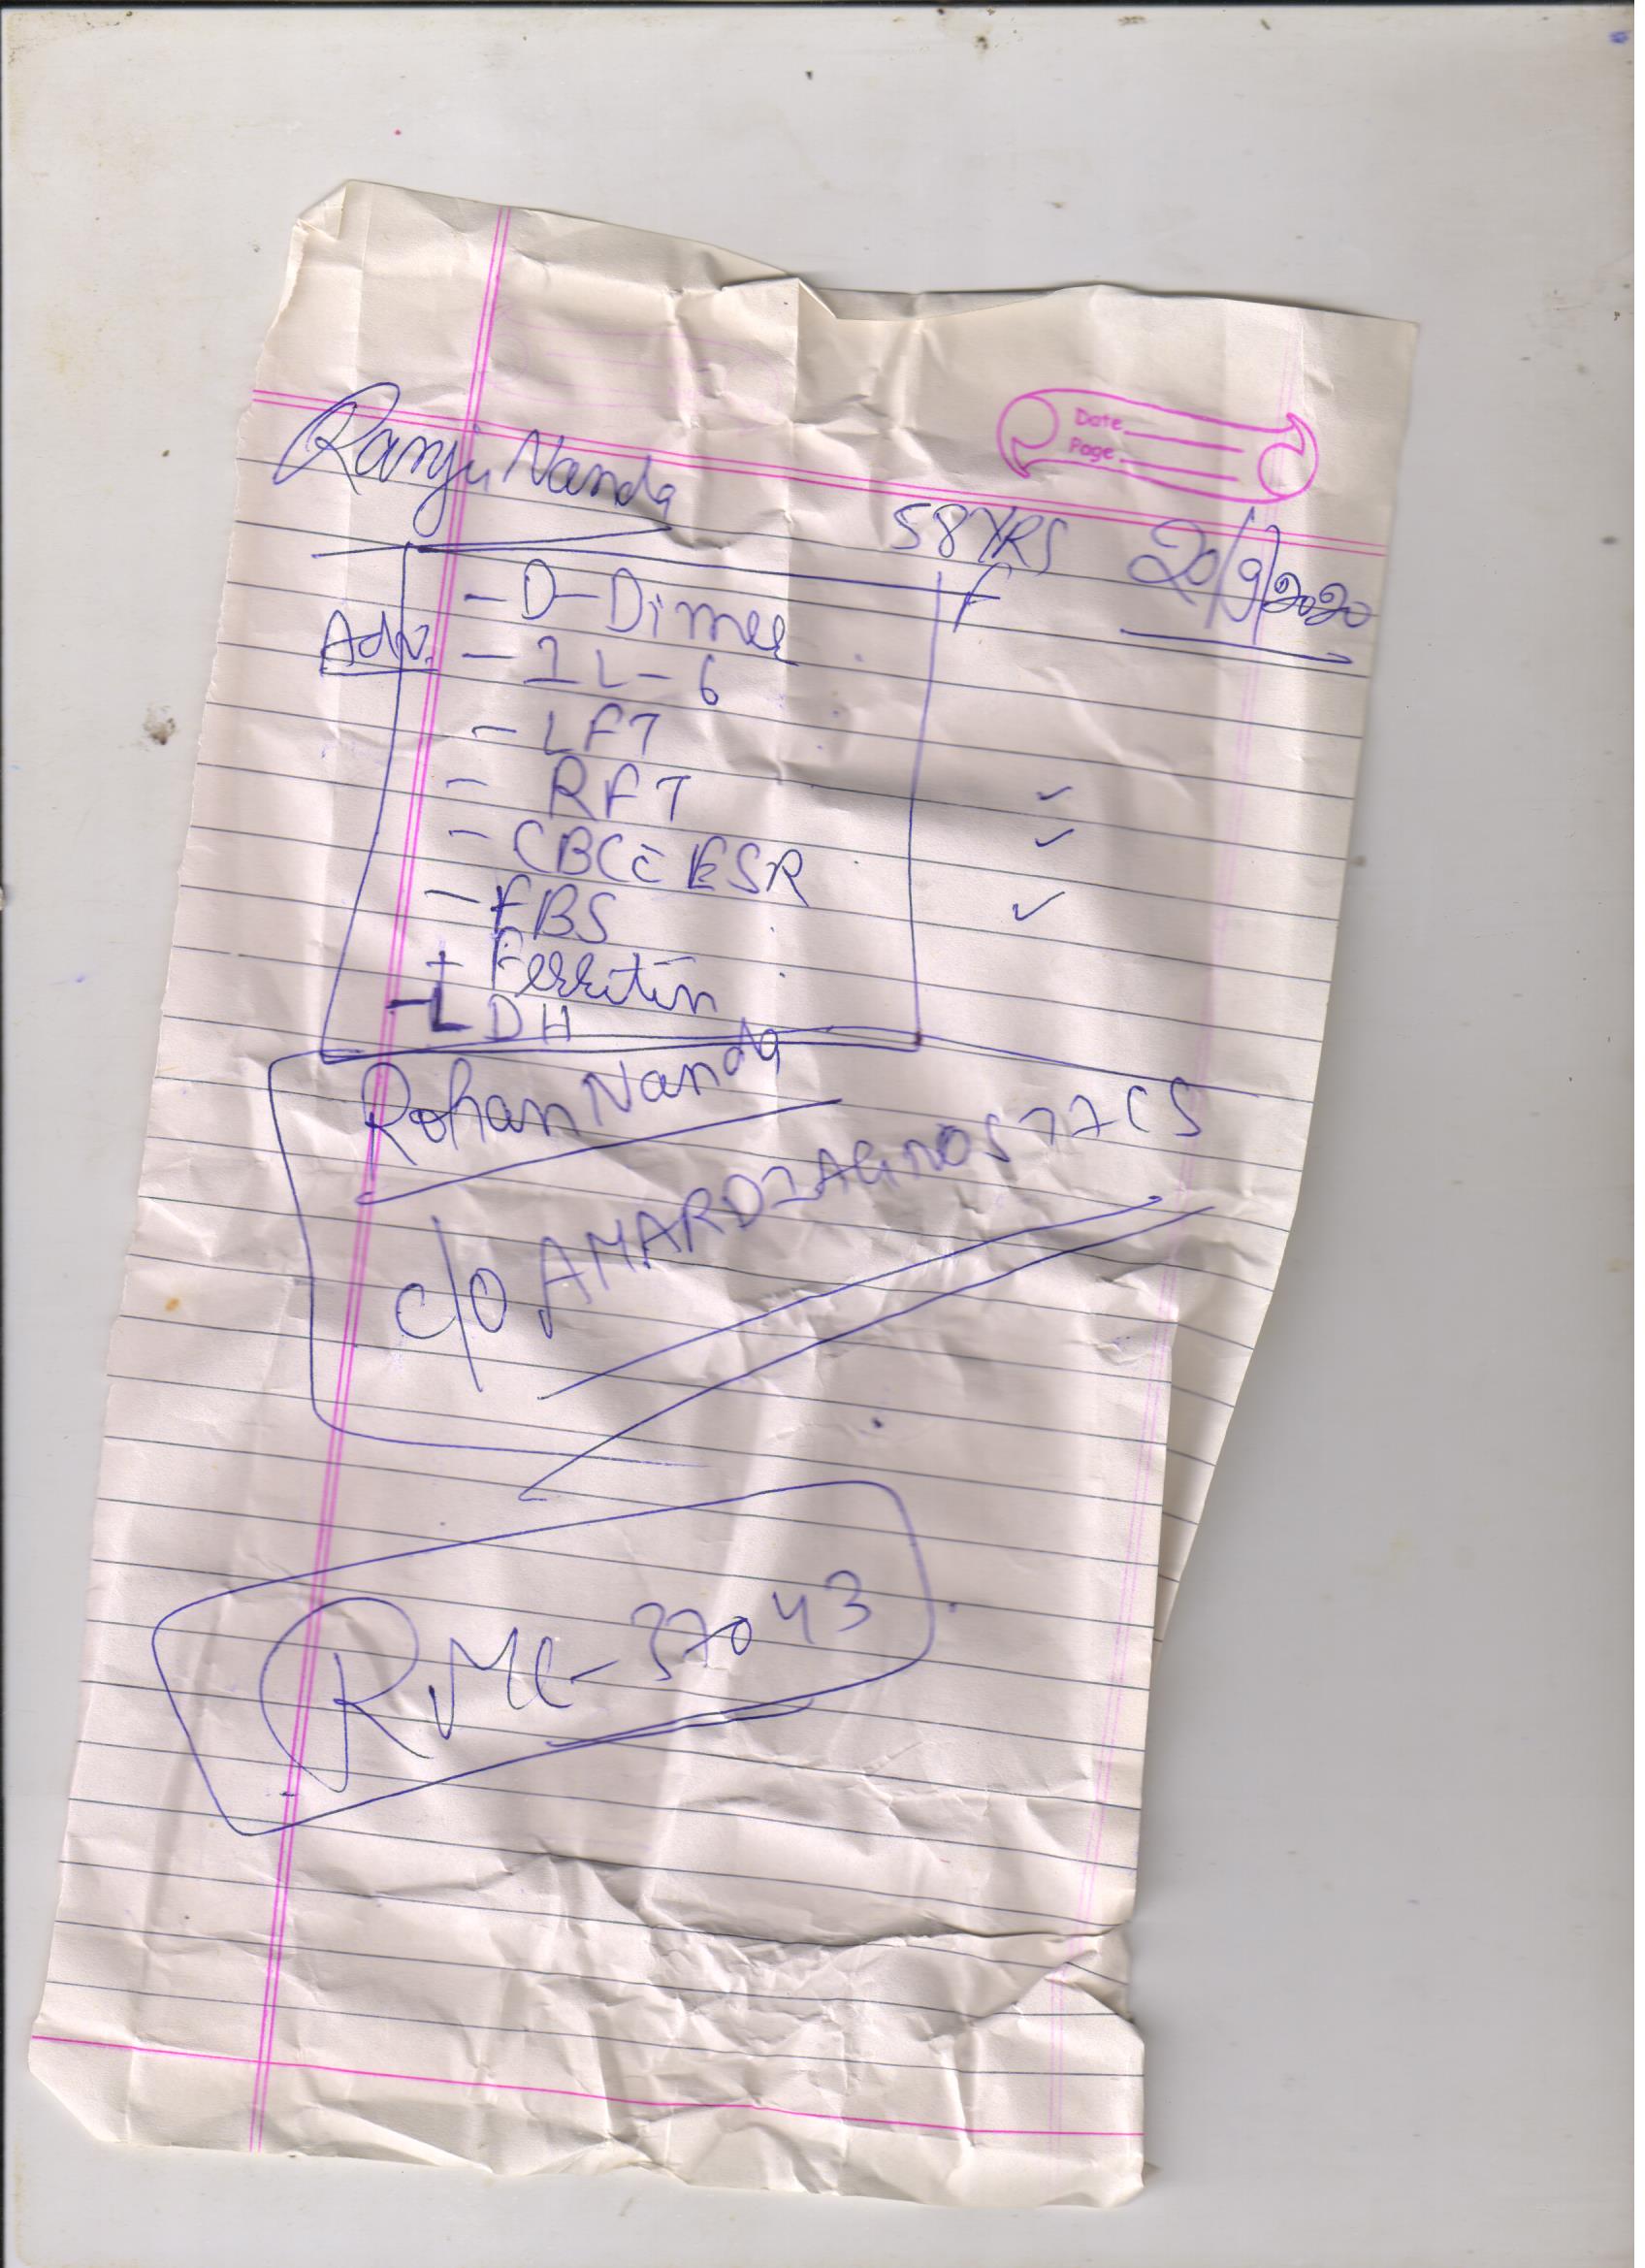 Date
Page
Ranju Nanda
58 YRS 20/9/2020
- D-Dimer F
Adv. - IL-6
- LFT
- RFT ✓
- CBC c̄ ESR ✓
- FBS ✓
+ Ferritin
- LDH
Rohan Nanda
c/o AMAR DIAGNOSTICS
37043